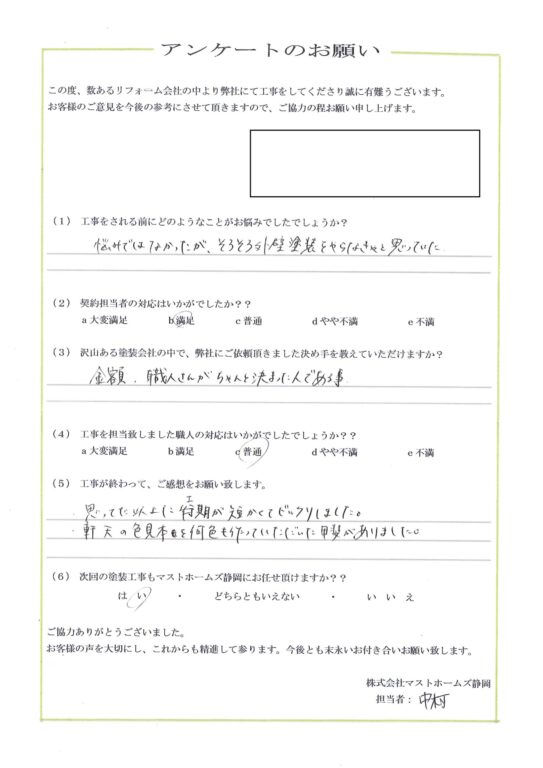 アンケートのお願い
この度、数あるリフォーム会社の中より弊社にて工事をしてくださり誠に有難うございます。
お客様のご意見を今後の参考にさせて頂きますので、ご協力の程お願い申し上げます。
(1) 工事をされる前にどのようなことがお悩みでしたでしょうか?
悩みではなかったが、そろそろ外壁塗装をやらなきゃと思っていた
(2) 契約担当者の対応はいかがでしたか??
a 大変満足 b 満足 c 普通 d やや不満 e 不満
(3) 沢山ある塗装会社の中で、弊社にご依頼頂きました決め手を教えていただけますか?
金額、職人さんがちゃんと決まった人である事
(4) 工事を担当致しました職人の対応はいかがでしたでしょうか?
a 大変満足 b 満足 c 普通 d やや不満 e 不満
(5) 工事が終わって、ご感想をお願い致します。
・思ってた以上に工期が短かくてビックリしました。
・軒天の色見本を何色も作っていただいた甲斐がありました。
(6) 次回の塗装工事もマストホームズ静岡にお任せ頂けますか??
はい ・ どちらともいえない ・ いいえ
ご協力ありがとうございました。
お客様の声を大切にし、これからも精進して参ります。今後とも末永いお付き合いお願い致します。
株式会社マストホームズ静岡
担当者: 中村